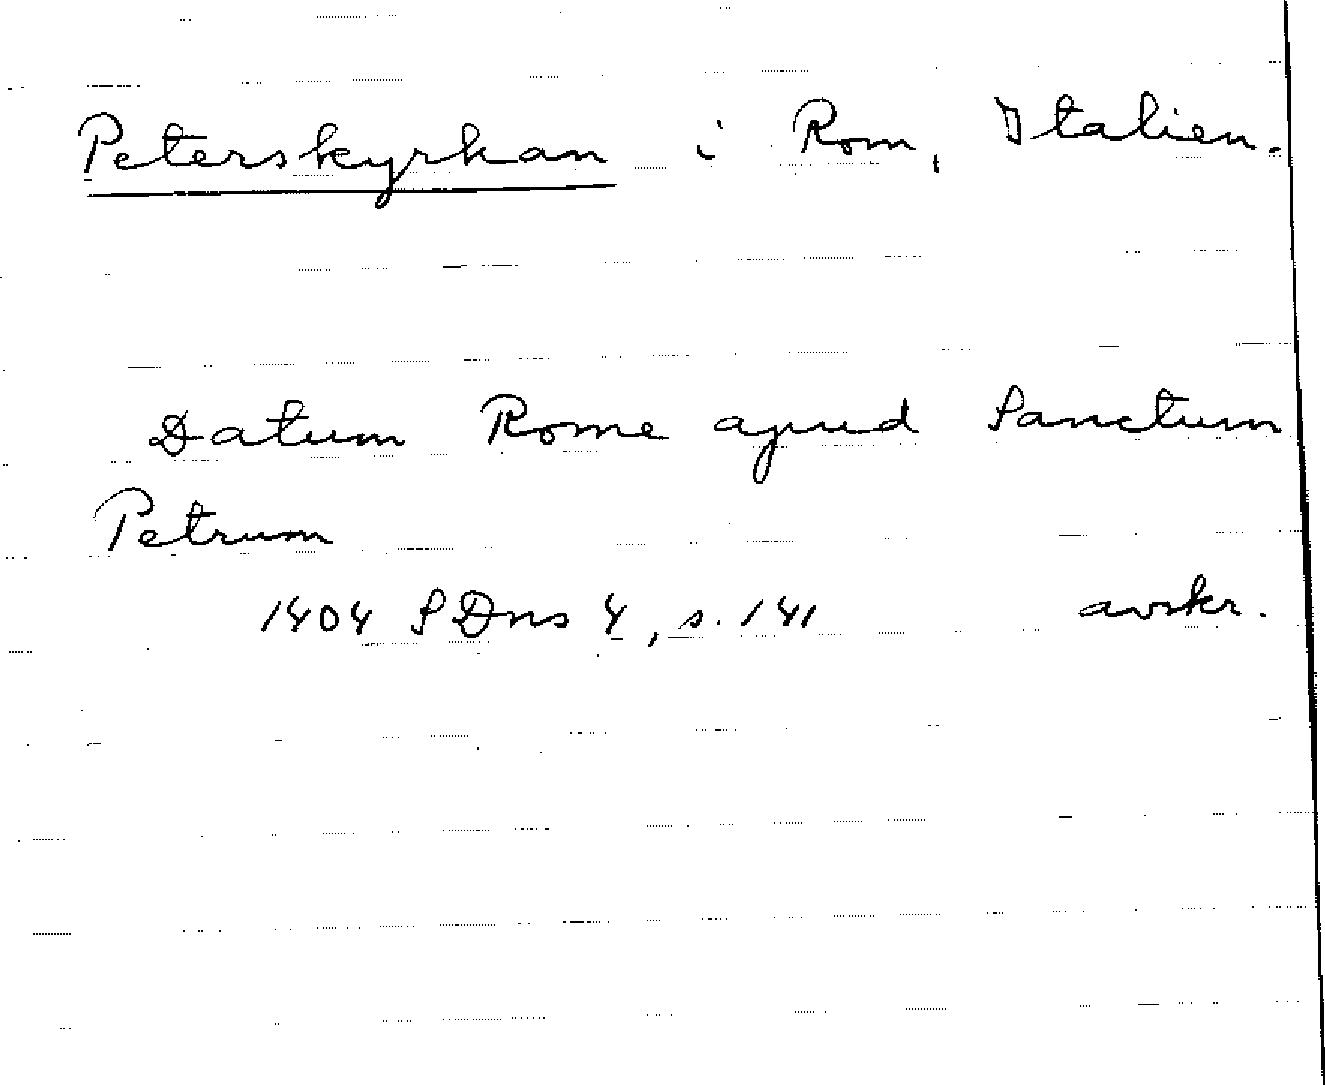 Peterskyrkan i Rom, Italien.
Datum Rome apud Sanctum
Petrum
1404 SDns 4, s. 141 avskr.